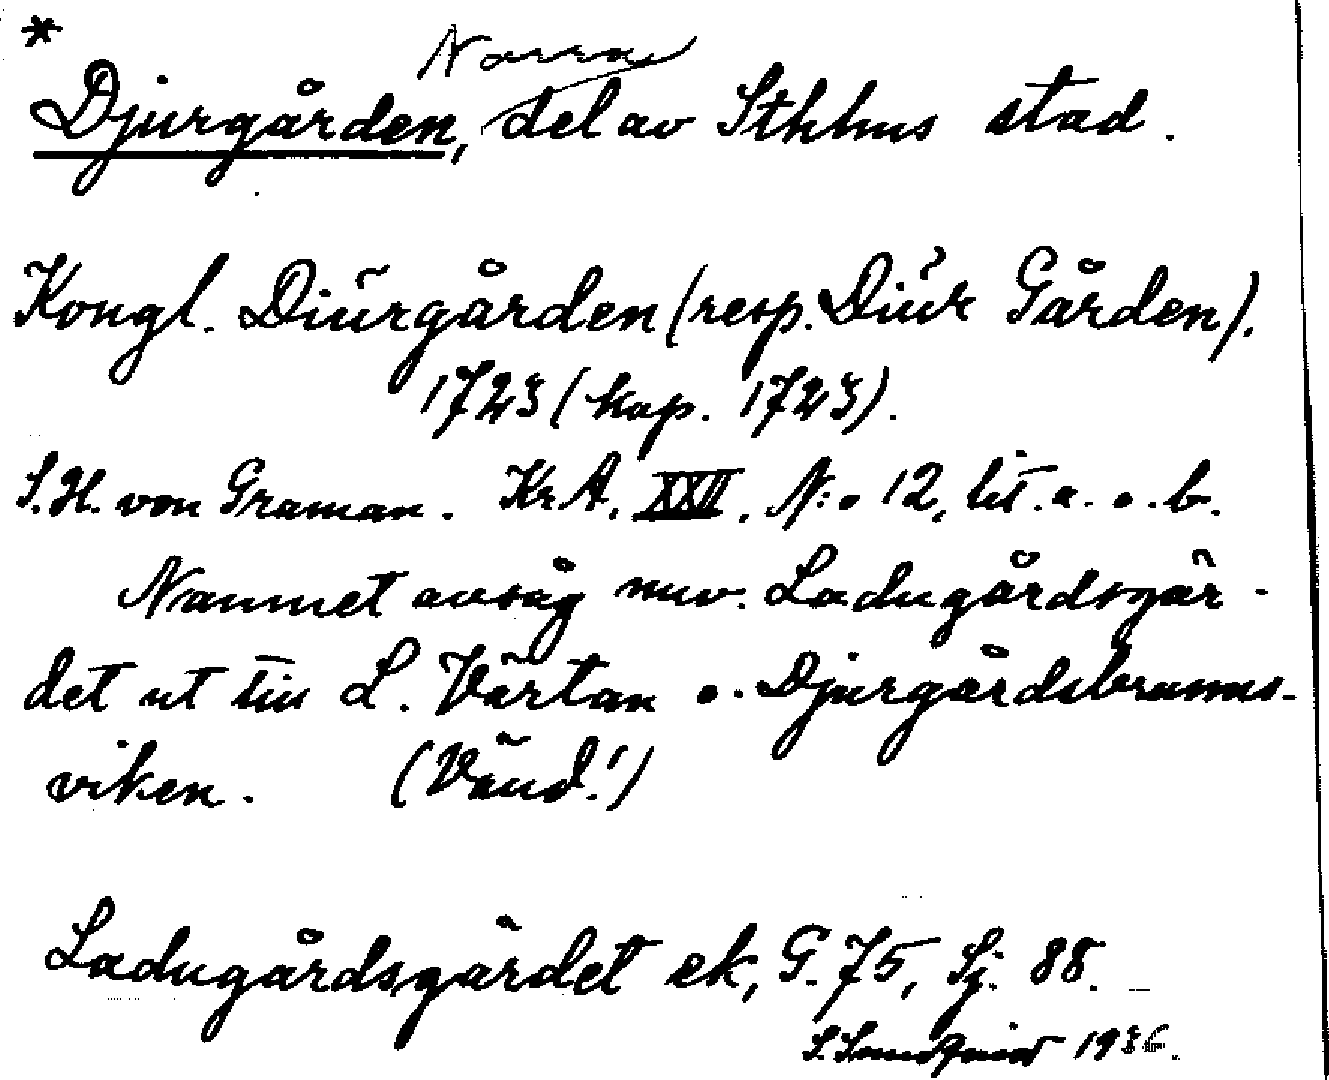 *
Norra
Djurgården, del av Sthlms stad.
Kongl. Diurgården (resp. Diur Gården).
1723 (kop. 1723).
S.H. von Graman. KrA. XXII. N:o 12, lit. a. o. b.
Namnet avsåg nuv. Ladugårdsgär-
det ut till L. Värtan o. Djurgårdsbrunns-
viken. (Vänd!)
Ladugårdsgärdet ek, G. 75, Sj. 88.
S. Lundqvist 1936.